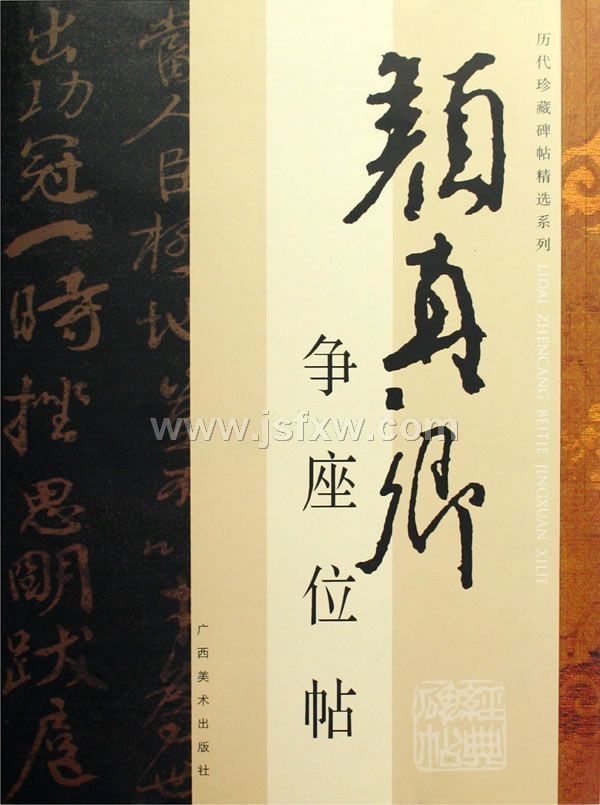 历代珍藏碑帖精选系列 LIDAI ZHENCANG BEITIE JINGXUAN XILIE
颜真卿
争座位帖
广西美术出版社
经典碑帖
www.jsfxw.com
当人臣极地岂不以才为世
出功冠一時挫思明跋扈